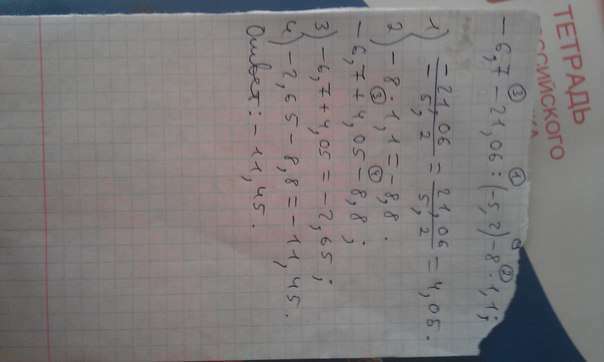 ТЕТРАДЬ
ОССИЙСКОГО
-6,7-21,06:(-5,2)-8·1,1;
③ ① ②
1) -21,06/-5,2 = 21,06/5,2 = 4,05.
2) -8·1,1=-8,8.
③ ④
-6,7+4,05-8,8;
3) -6,7+4,05=-2,65;
4) -2,65-8,8=-11,45.
Ответ: -11,45.